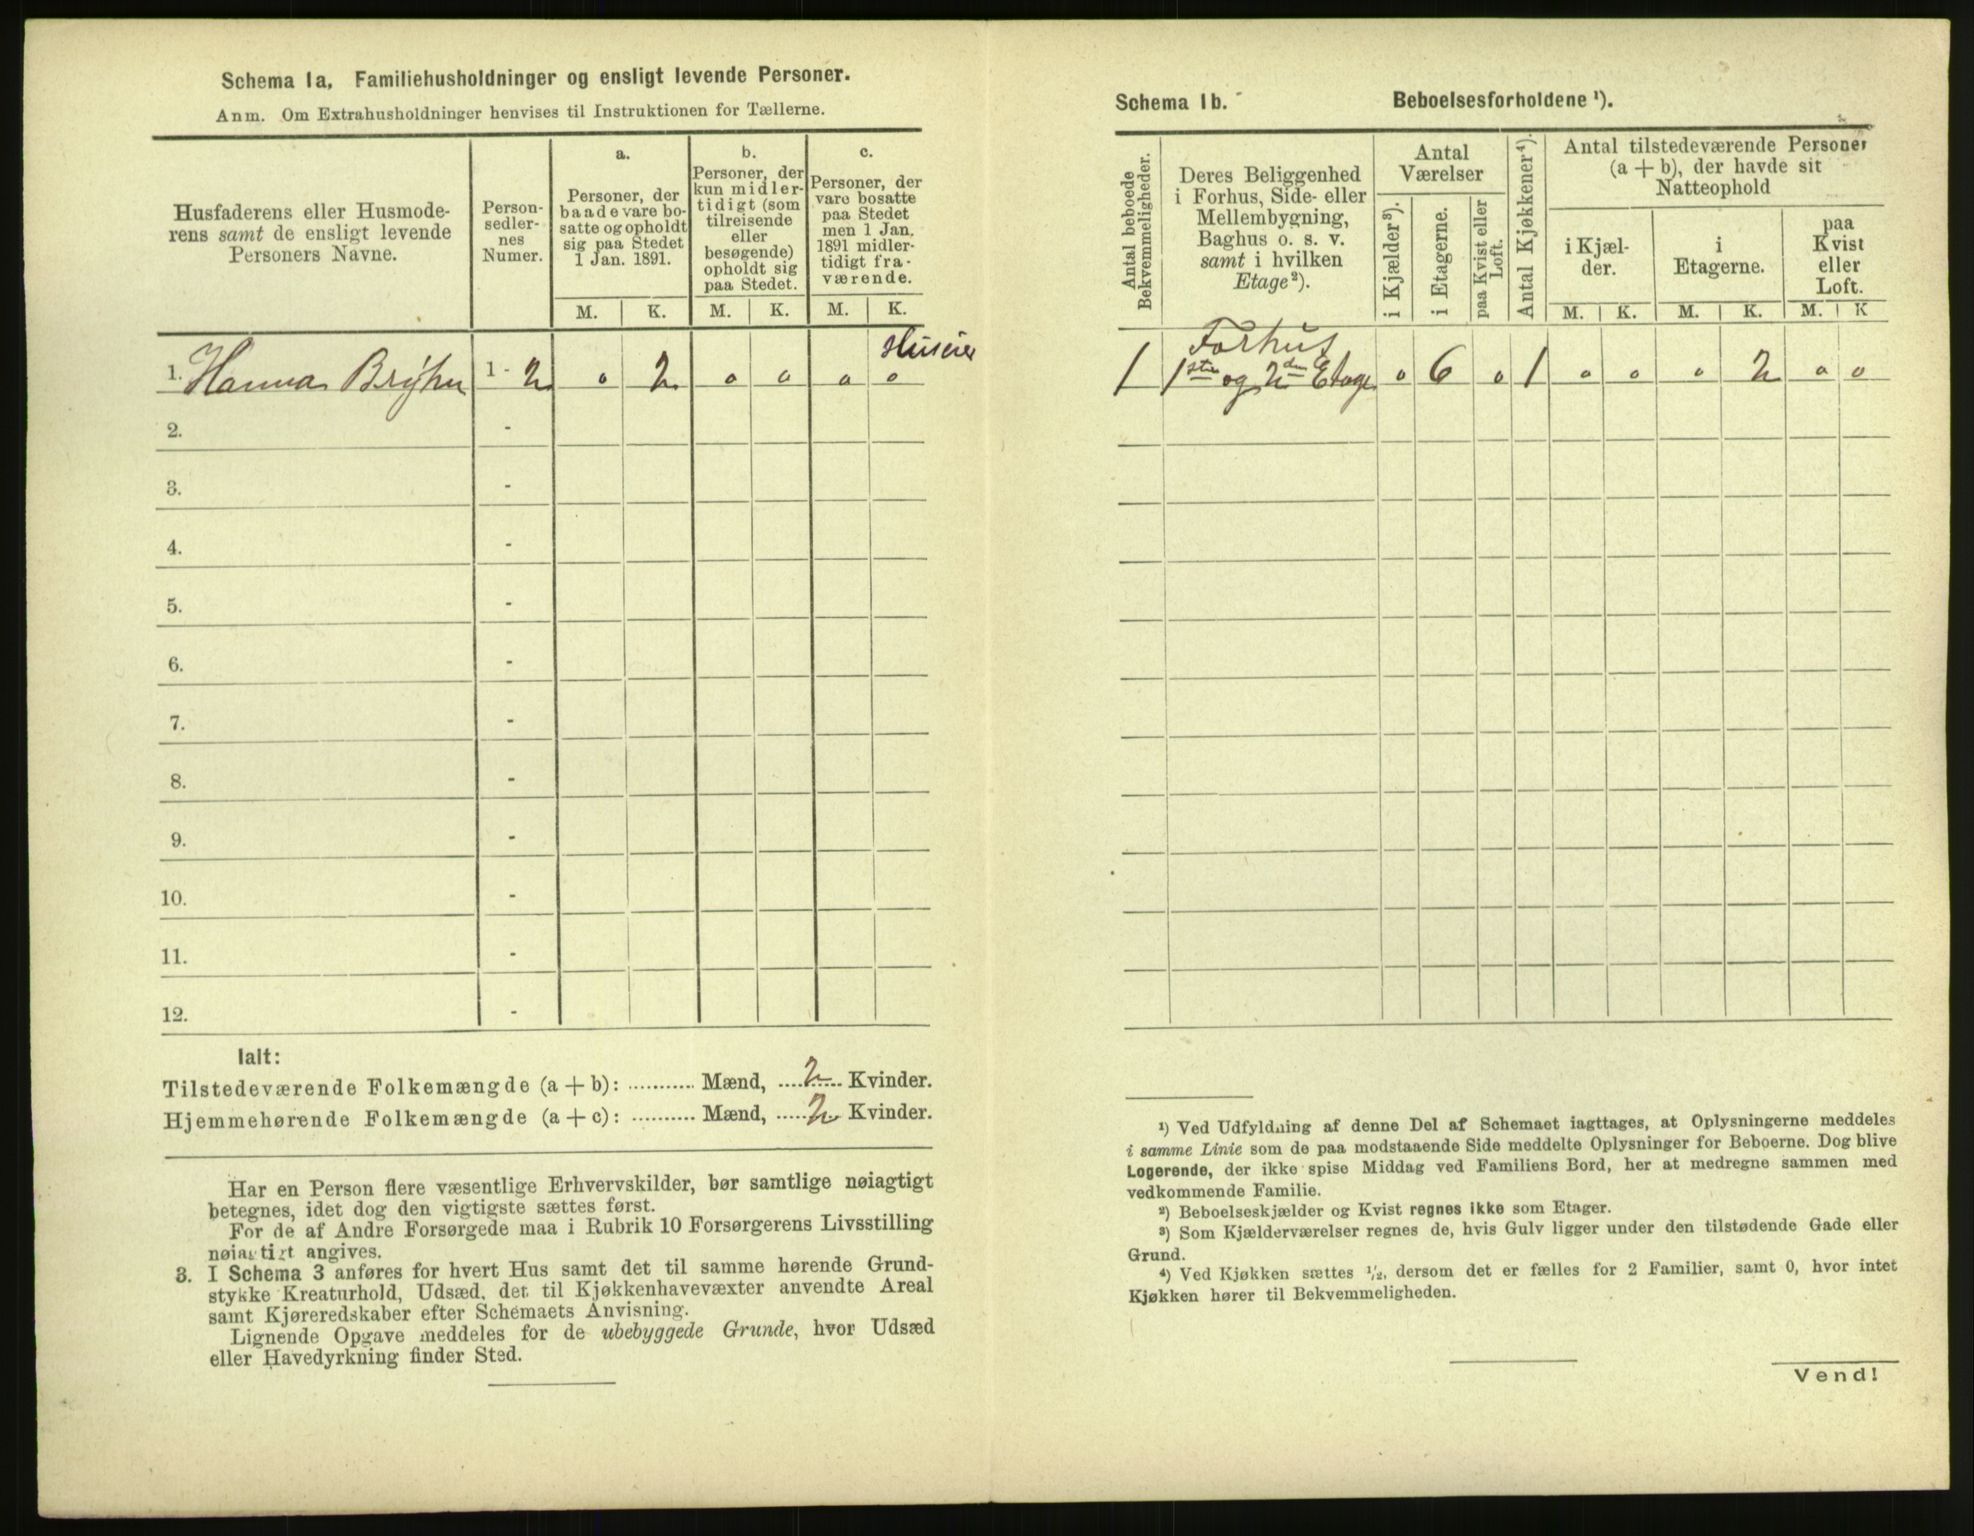 Schema Ia. Familiehusholdninger og ensligt levende Personer.
Anm. Om Extrahusholdninger henvises til Instruktionen for Tællerne.
Husfaderens eller Husmode-
rens samt de ensligt levende
Personers Navne.
Person-
sedler-
nes
Numer.
a.
Personer, der
baade vare bo-
satte og opholdt
sig paa Stedet
1 Jan. 1891.
b.
Personer, der
kun midler-
tidigt (som
tilreisende
eller
besøgende)
opholdt sig
paa Stedet.
c.
Personer, der
vare bosatte
paa Stedet
men 1 Jan.
1891 midler-
tidigt fra-
værende.
M. K. M. K. M. K.
Huseier
1. Hanna Brÿhn 1 - 2 0 2 0 0 0 0
2. -
3. -
4. -
5. -
6. -
7. -
8. -
9. -
10. -
11. -
12. -
Ialt:
Tilstedeværende Folkemængde (a + b): ........... Mænd, ....2.... Kvinder.
Hjemmehørende Folkemængde (a + c): .......... Mænd, ....2.... Kvinder.
Har en Person flere væsentlige Erhvervskilder, bør samtlige nøiagtigt
betegnes, idet dog den vigtigste sættes først.
For de af Andre Forsørgede maa i Rubrik 10 Forsørgerens Livsstilling
nøiagtigt angives.
3. I Schema 3 anføres for hvert Hus samt det til samme hørende Grund-
stykke Kreaturhold, Udsæd, det til Kjøkkenhavevæxter anvendte Areal
samt Kjøreredskaber efter Schemaets Anvisning.
Lignende Opgave meddeles for de ubebyggede Grunde, hvor Udsæd
eller Havedyrkning finder Sted.
Schema Ib. Beboelsesforholdene ¹).
Antal beboede
Bekvemmeligheder.
Deres Beliggenhed
i Forhus, Side- eller
Mellembygning,
Baghus o. s. v.
samt i hvilken
Etage²).
Antal
Værelser
i Kjælder³).
i Etagerne.
paa Kvist eller
Loft.
Antal Kjøkkener⁴).
Antal tilstedeværende Personer
(a + b), der havde sit
Natteophold
i Kjæl-
der.
i
Etagerne.
paa
Kvist
eller
Loft.
M. K. M. K. M. K
Forhus
1 1ste og 2den Etage 0 6 0 1 0 0 0 2 0 0
¹) Ved Udfyldning af denne Del af Schemaet iagttages, at Oplysningerne meddeles
i samme Linie som de paa modstaaende Side meddelte Oplysninger for Beboerne. Dog blive
Logerende, der ikke spise Middag ved Familiens Bord, her at medregne sammen med
vedkommende Familie.
²) Beboelseskjælder og Kvist regnes ikke som Etager.
³) Som Kjælderværelser regnes de, hvis Gulv ligger under den tilstødende Gade eller
Grund.
⁴) Ved Kjøkken sættes ½, dersom det er fælles for 2 Familier, samt 0, hvor intet
Kjøkken hører til Bekvemmeligheden.
Vend!